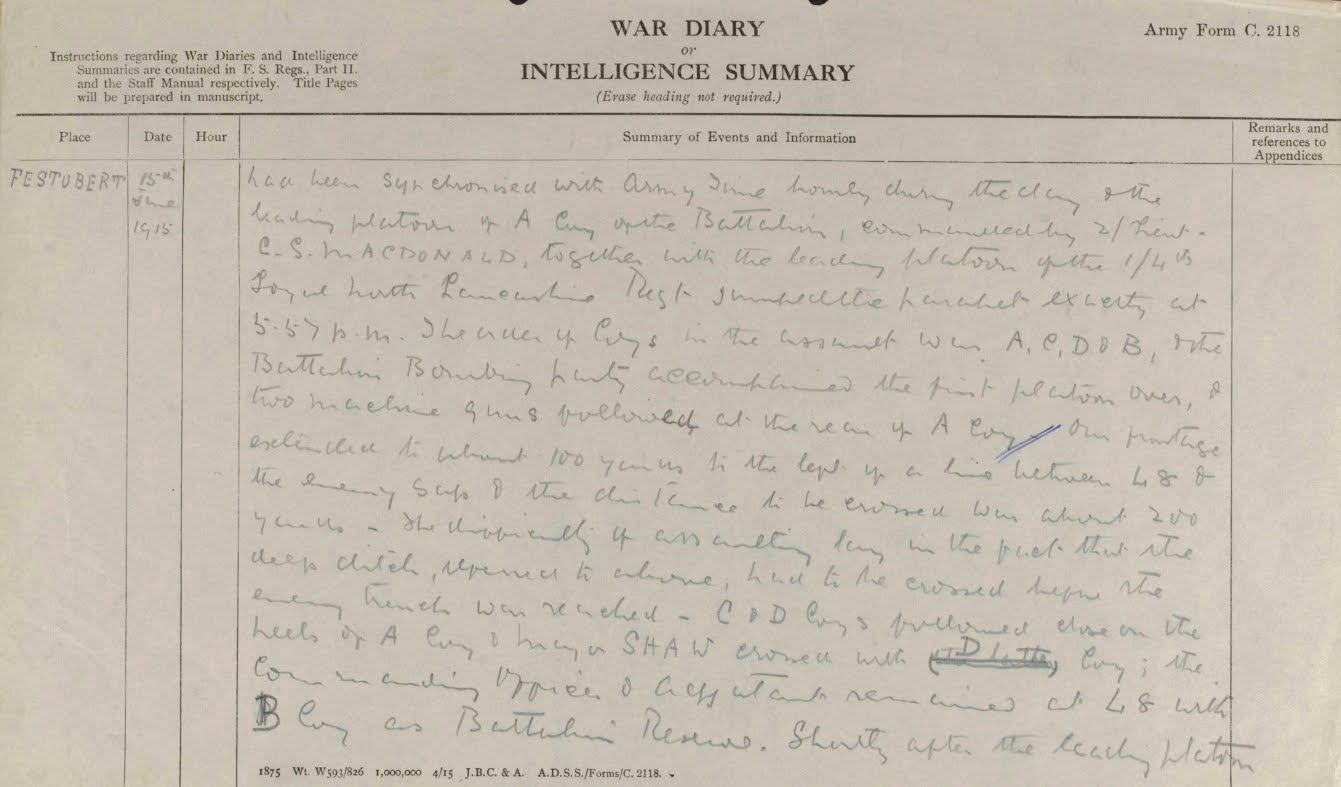 WAR DIARY
or
INTELLIGENCE SUMMARY
(Erase heading not required.)
Army Form C. 2118
Instructions regarding War Diaries and Intelligence
Summaries are contained in F. S. Regs., Part II.
and the Staff Manual respectively. Title Pages
will be prepared in manuscript.
Place
Date
Hour
Summary of Events and Information
Remarks and
references to
Appendices
FESTUBERT
15th
June
1915
had been synchronised with Army Time hourly during the day & the
leading platoon of A Coy of the Battalion, commanded by 2/Lieut.
C.S. MACDONALD, together with the leading platoon of the 1/4th
Loyal North Lancashire Regt jumped the parapet exactly at
5.57 p.m. The order of Coys in the assault was A, C, D & B, & the
Battalion Bombing party accompanied the first platoon over, &
two machine guns followed at the rear of A Coy Our frontage
extended to about 100 yards to the left of a line between L8 &
the enemy Sap & the distance to be crossed was about 200
yards - The difficulty of assaulting lay in the fact that the
deep ditch, referred to above, had to be crossed before the
enemy trench was reached - C & D Coys followed close on the
heels of A Coy & Major SHAW crossed with D Coy; the
Commanding Officer & Adjutant remained at L8 with
B Coy as Battalion Reserve. Shortly after the leading platoon
1875 Wt. W593/826 1,000,000 4/15 J.B.C. & A. A.D.S.S./Forms/C. 2118.